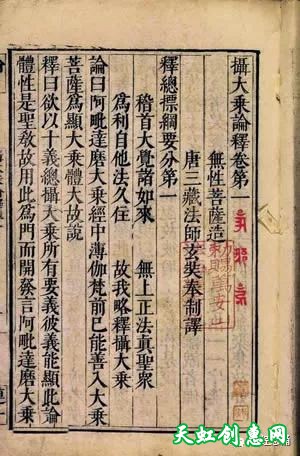 攝大乘論釋卷第一
無性菩薩造
唐三藏法師玄奘奉制譯
釋總標綱要分第一
稽首大覺諸如來　無上正法真聖衆
爲利自他法久住　故我略釋攝大乘
論曰阿毗達磨大乘經中薄伽梵前已能善入大乘
菩薩爲顯大乘體大故說
釋曰欲以十義總攝大乘所有要義彼義能顯此論
體性是聖敎故用此爲門而開發言阿毗達磨大乘
天虹创意网